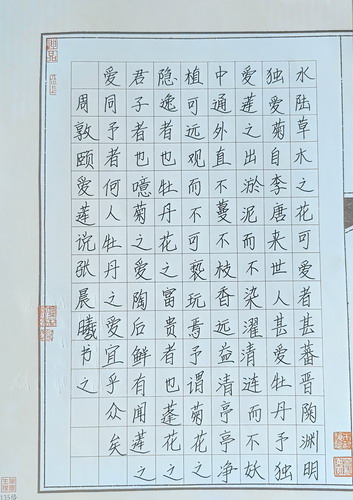 水陆草木之花可爱者甚蕃晋陶渊明
独爱菊自李唐来世人甚爱牡丹予独
爱莲之出淤泥而不染濯清涟而不妖
中通外直不蔓不枝香远益清亭亭净
植可远观而不可亵玩焉予谓菊花之
隐逸者也牡丹花之富贵者也莲花之
君子者也噫菊之爱陶后鲜有闻莲之
爱同予者何人牡丹之爱宜乎众矣
周敦颐爱莲说张晨曦书之